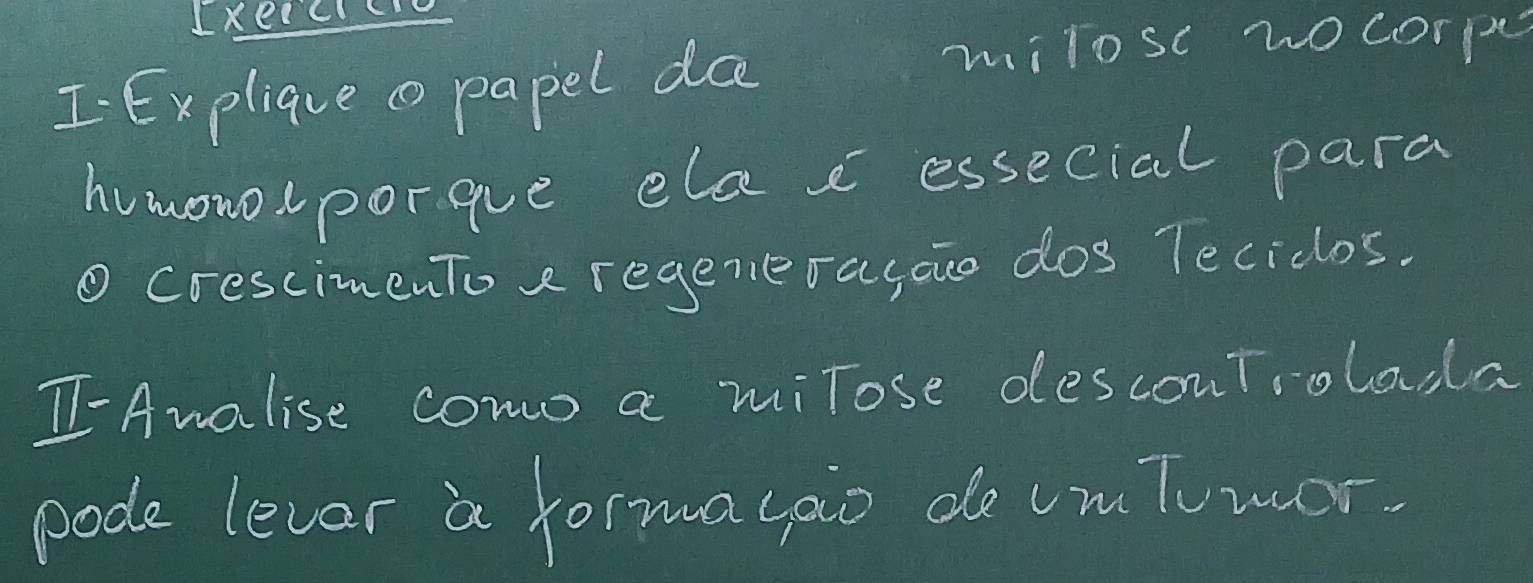 Exercício
I-Explique o papel da mitose no corpo
humano e por que ela é essecial para
o crescimento e regeneração dos Tecidos.
II-Analise como a miTose desconTrolada
pode levar à formação de um Tumor.